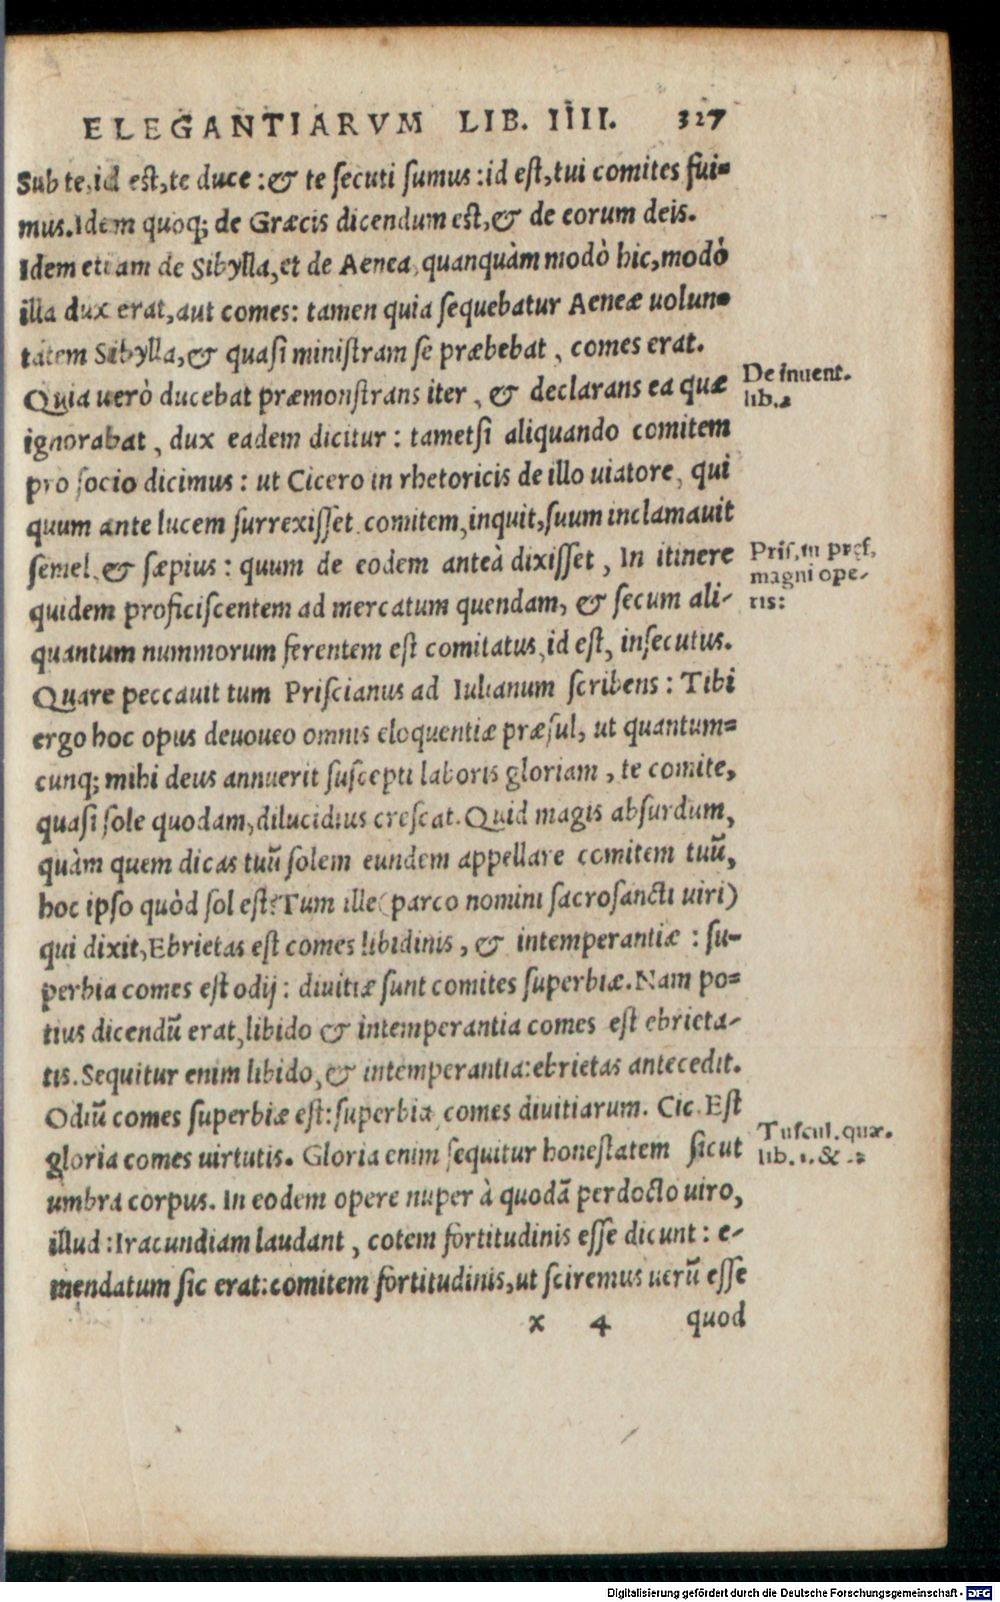 ELEGANTIARVM LIB. IIII. 327
Sub te, id est, te duce: & te secuti sumus: id est, tui comites fui=
mus. Idem quoq; de Græcis dicendum est, & de eorum deis.
Idem etiam de Sibylla, et de Aenea, quanquàm modò hic, modò
illa dux erat, aut comes: tamen quia sequebatur Aeneæ uolun=
tatem Sibylla, & quasi ministram se præbebat, comes erat.
Quia uerò ducebat præmonstrans iter, & declarans ea quæ
ignorabat, dux eadem dicitur: tametsi aliquando comitem
pro socio dicimus: ut Cicero in rhetoricis de illo uiatore, qui
quum ante lucem surrexisset comitem, inquit, suum inclamauit
semel, & sæpius: quum de eodem anteà dixisset, In itinere
quidem proficiscentem ad mercatum quendam, & secum ali-
quantum nummorum ferentem est comitatus, id est, insecutus.
Quare peccauit tum Priscianus ad Iulianum scribens: Tibi
ergo hoc opus deuoueo omnis eloquentiæ præsul, ut quantum=
cunq; mihi deus annuerit suscepti laboris gloriam, te comite,
quasi sole quodam, dilucidius crescat. Quid magis absurdum,
quàm quem dicas tuũ solem eundem appellare comitem tuũ,
hoc ipso quòd sol est? Tum ille (parco nomini sacrosancti uiri)
qui dixit, Ebrietas est comes libidinis, & intemperantiæ: su-
perbia comes est odij: diuitiæ sunt comites superbiæ. Nam po=
tius dicendũ erat, libido & intemperantia comes est ebrieta-
tis. Sequitur enim libido, & intemperantia: ebrietas antecedit.
Odiũ comes superbiæ est: superbia comes diuitiarum. Cic. Est
gloria comes uirtutis. Gloria enim sequitur honestatem sicut
umbra corpus. In eodem opere nuper à quodã perdocto uiro,
illud: Iracundiam laudant, cotem fortitudinis esse dicunt: e-
mendatum sic erat: comitem fortitudinis, ut sciremus uerũ esse
x 4 quod
De inuent.
lib. 2
Pris. in pręf.
magni ope-
ris:
Tuscul. quæ.
lib. 1. &
Digitalisierung gefördert durch die Deutsche Forschungsgemeinschaft - DFG